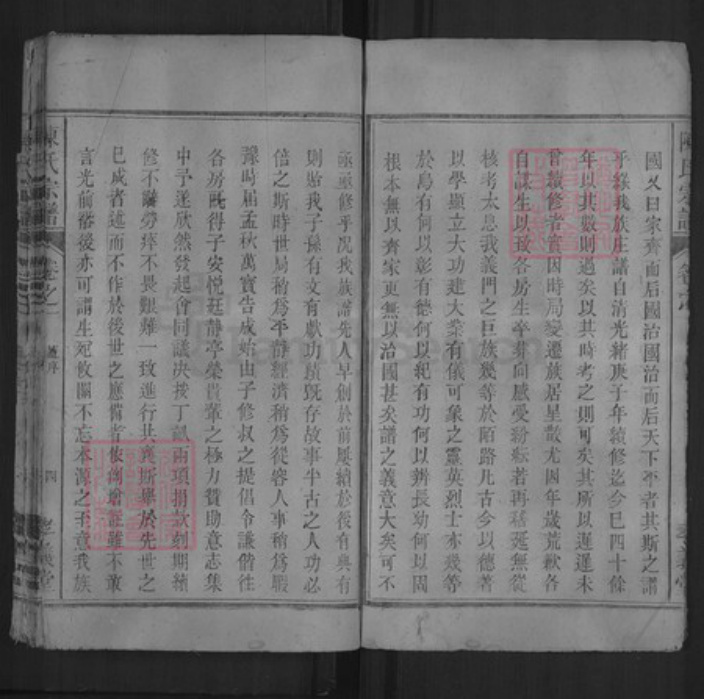 國久曰家齊而后國治國治而后天下平者其斯之謂
乎緣我族庄譜自清光緒庚子年續修迄今已四十餘
年以其數則過矣以其時考之則可矣其所以遲遲未
曾續修者實因時局變遷族居星散尤因年歲荒歉各
自謀生以致各房生卒葬向感受紛紜若再稽延無從
核考太息我義門之巨族幾等於陌路凡古今以德著
以學顯立大功建大業有儀可象之靈英烈士亦幾等
於烏有何以彰有德何以紀有功何以辨長幼何以固
根本無以齊家更無以治國甚矣譜之義意大矣可不
亟亟修乎况我族譜先人早創於前屢續於後有典有
則貽我子孫有文有獻功績既存故事半古之人功必
倍之斯時世局稍爲平靜經濟稍爲從容人事稍爲暇
豫時届孟秋萬寶告成始由子修叔之提倡令謙偕往
各房既得子安悅廷靜亭榮貴輩之極力贊助意志集
中予遂欣然發起會同議决按丁 兩項捐款刻期續
修不辭勞瘁不畏艱難一致進行共襄斯舉於先世之
已成者述而不作於後世之應備者依例增 雖不敢
言光前裕後亦可謂生死攸關不忘本源之 意我族
陳氏宗譜
卷之
四
堂